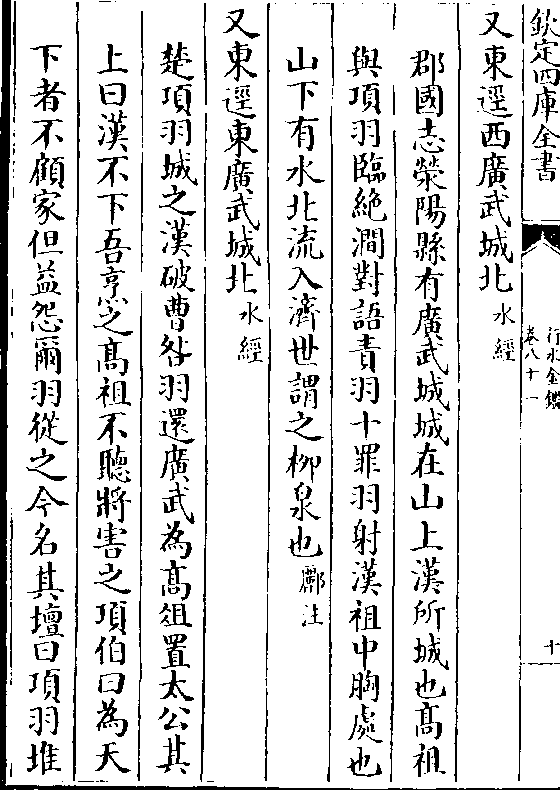 欽定四庫全書
行水金鑑
卷八十一
十
又東逕西廣武城北水經
郡國志滎陽縣有廣武城城在山上漢所城也髙祖
與項羽臨絶澗對語責羽十罪羽射漢祖中胸處也
山下有水北流入濟世謂之柳泉也酈注
又東逕東廣武城北水經
楚項羽城之漢破曹咎羽還廣武為髙俎置太公其
上曰漢不下吾烹之髙祖不聽將害之項伯曰為天
下者不顧家但益怨爾羽從之今名其壇曰項羽堆